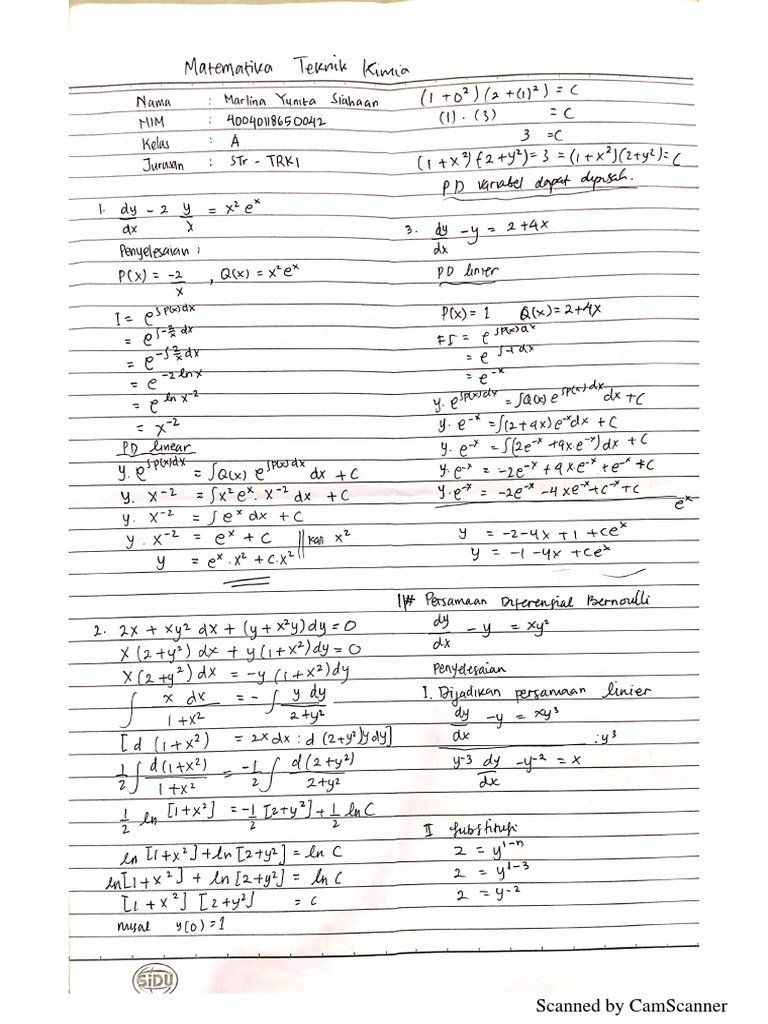 Matematika Teknik Kimia
Nama : Marlina Yunita Siahaan
NIM : 40040118650042
Kelas : A
Jurusan : STr - TRKI
1. dy/dx - 2 y/x = x² eˣ
Penyelesaian :
P(x) = -2/x , Q(x) = x² eˣ
I = e^∫P(x)dx
= e^∫-2/x dx
= e^-∫2/x dx
= e^-2 ln x
= e^ln x⁻²
= x⁻²
PD linear
y. e^∫P(x)dx = ∫Q(x) e^∫P(x)dx dx + C
y. x⁻² = ∫x² eˣ. x⁻² dx + C
y. x⁻² = ∫eˣ dx + C
y. x⁻² = eˣ + C || kali x²
y = eˣ. x² + C. x²
2. 2x + xy² dx + (y + x²y) dy = 0
x (2+y²) dx + y (1+x²) dy = 0
x (2+y²) dx = -y (1+x²) dy
∫ x dx / 1+x² = -∫ y dy / 2+y²
[d (1+x²) = 2x dx : d (2+y²) y dy]
1/2 ∫ d(1+x²) / 1+x² = -1/2 ∫ d(2+y²) / 2+y²
1/2 ln [1+x²] = -1/2 [2+y²] + 1/2 ln C
ln [1+x²] + ln [2+y²] = ln C
ln [1+x²] + ln [2+y²] = ln C
[1+x²] [2+y²] = c
misal y(0) = 1
(1+0²) (2+(1)²) = C
(1) . (3) = C
3 = C
(1+x²) (2+y²) = 3 = (1+x²) (2+y²) = C
PD variabel dapat dipisah.
3. dy/dx - y = 2+4x
PD linier
P(x) = 1 Q(x) = 2+4x
FI = e^∫P(x) dx
= e^∫-1 dx
= e⁻ˣ
y. e^∫P(x)dx = ∫Q(x) e^∫P(x)dx dx + C
y. e⁻ˣ = ∫(2+4x) e⁻ˣ dx + C
y. e⁻ˣ = ∫(2e⁻ˣ + 4x.e⁻ˣ) dx + C
y. e⁻ˣ = -2e⁻ˣ + 4x.e⁻ˣ + e⁻ˣ + C
y. e⁻ˣ = -2e⁻ˣ - 4xe⁻ˣ + c⁻ˣ + C
eˣ
y = -2-4x + 1 + ceˣ
y = -1 -4x + ceˣ
1# Persamaan Diferensial Bernoulli
dy/dx - y = xy²
Penyelesaian
I. Dijadikan persamaan linier
dy/dx - y = xy³
: y³
y⁻³ dy/dx - y⁻² = x
II Substitusi
z = y¹⁻ⁿ
z = y¹⁻³
z = y⁻²
SiDU
Scanned by CamScanner